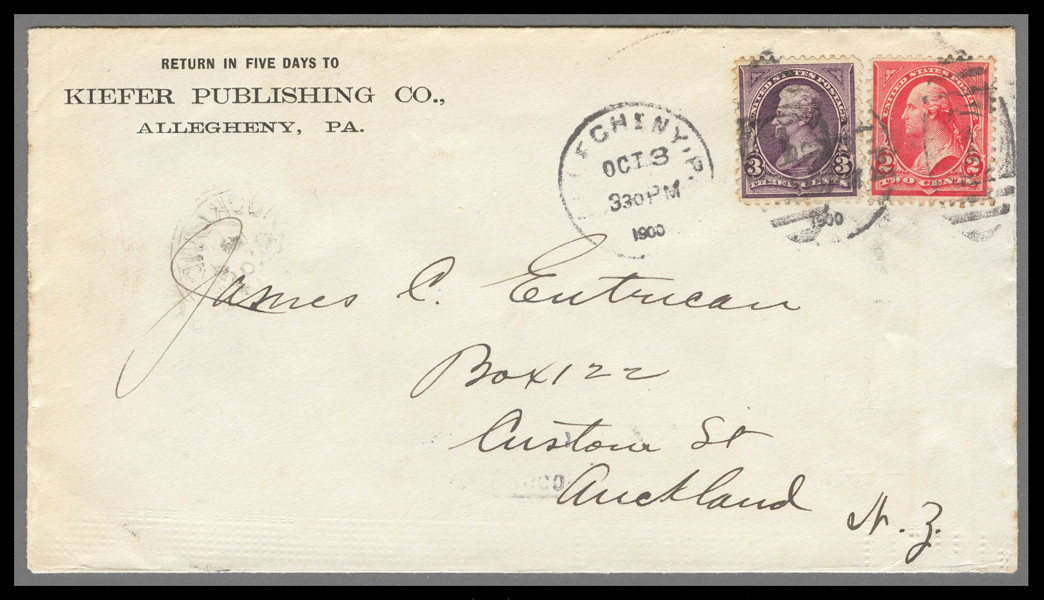 RETURN IN FIVE DAYS TO
KIEFER PUBLISHING CO.,
ALLEGHENY, PA.
EGHENY, P
OCT 3
330 PM
1900
UNITED STATES POSTAGE
3 3
UNITED STATES POSTAGE
2 2
TWO CENTS
1900
James C. Entrican
Box 122
Custom St
Auckland
N. Z.